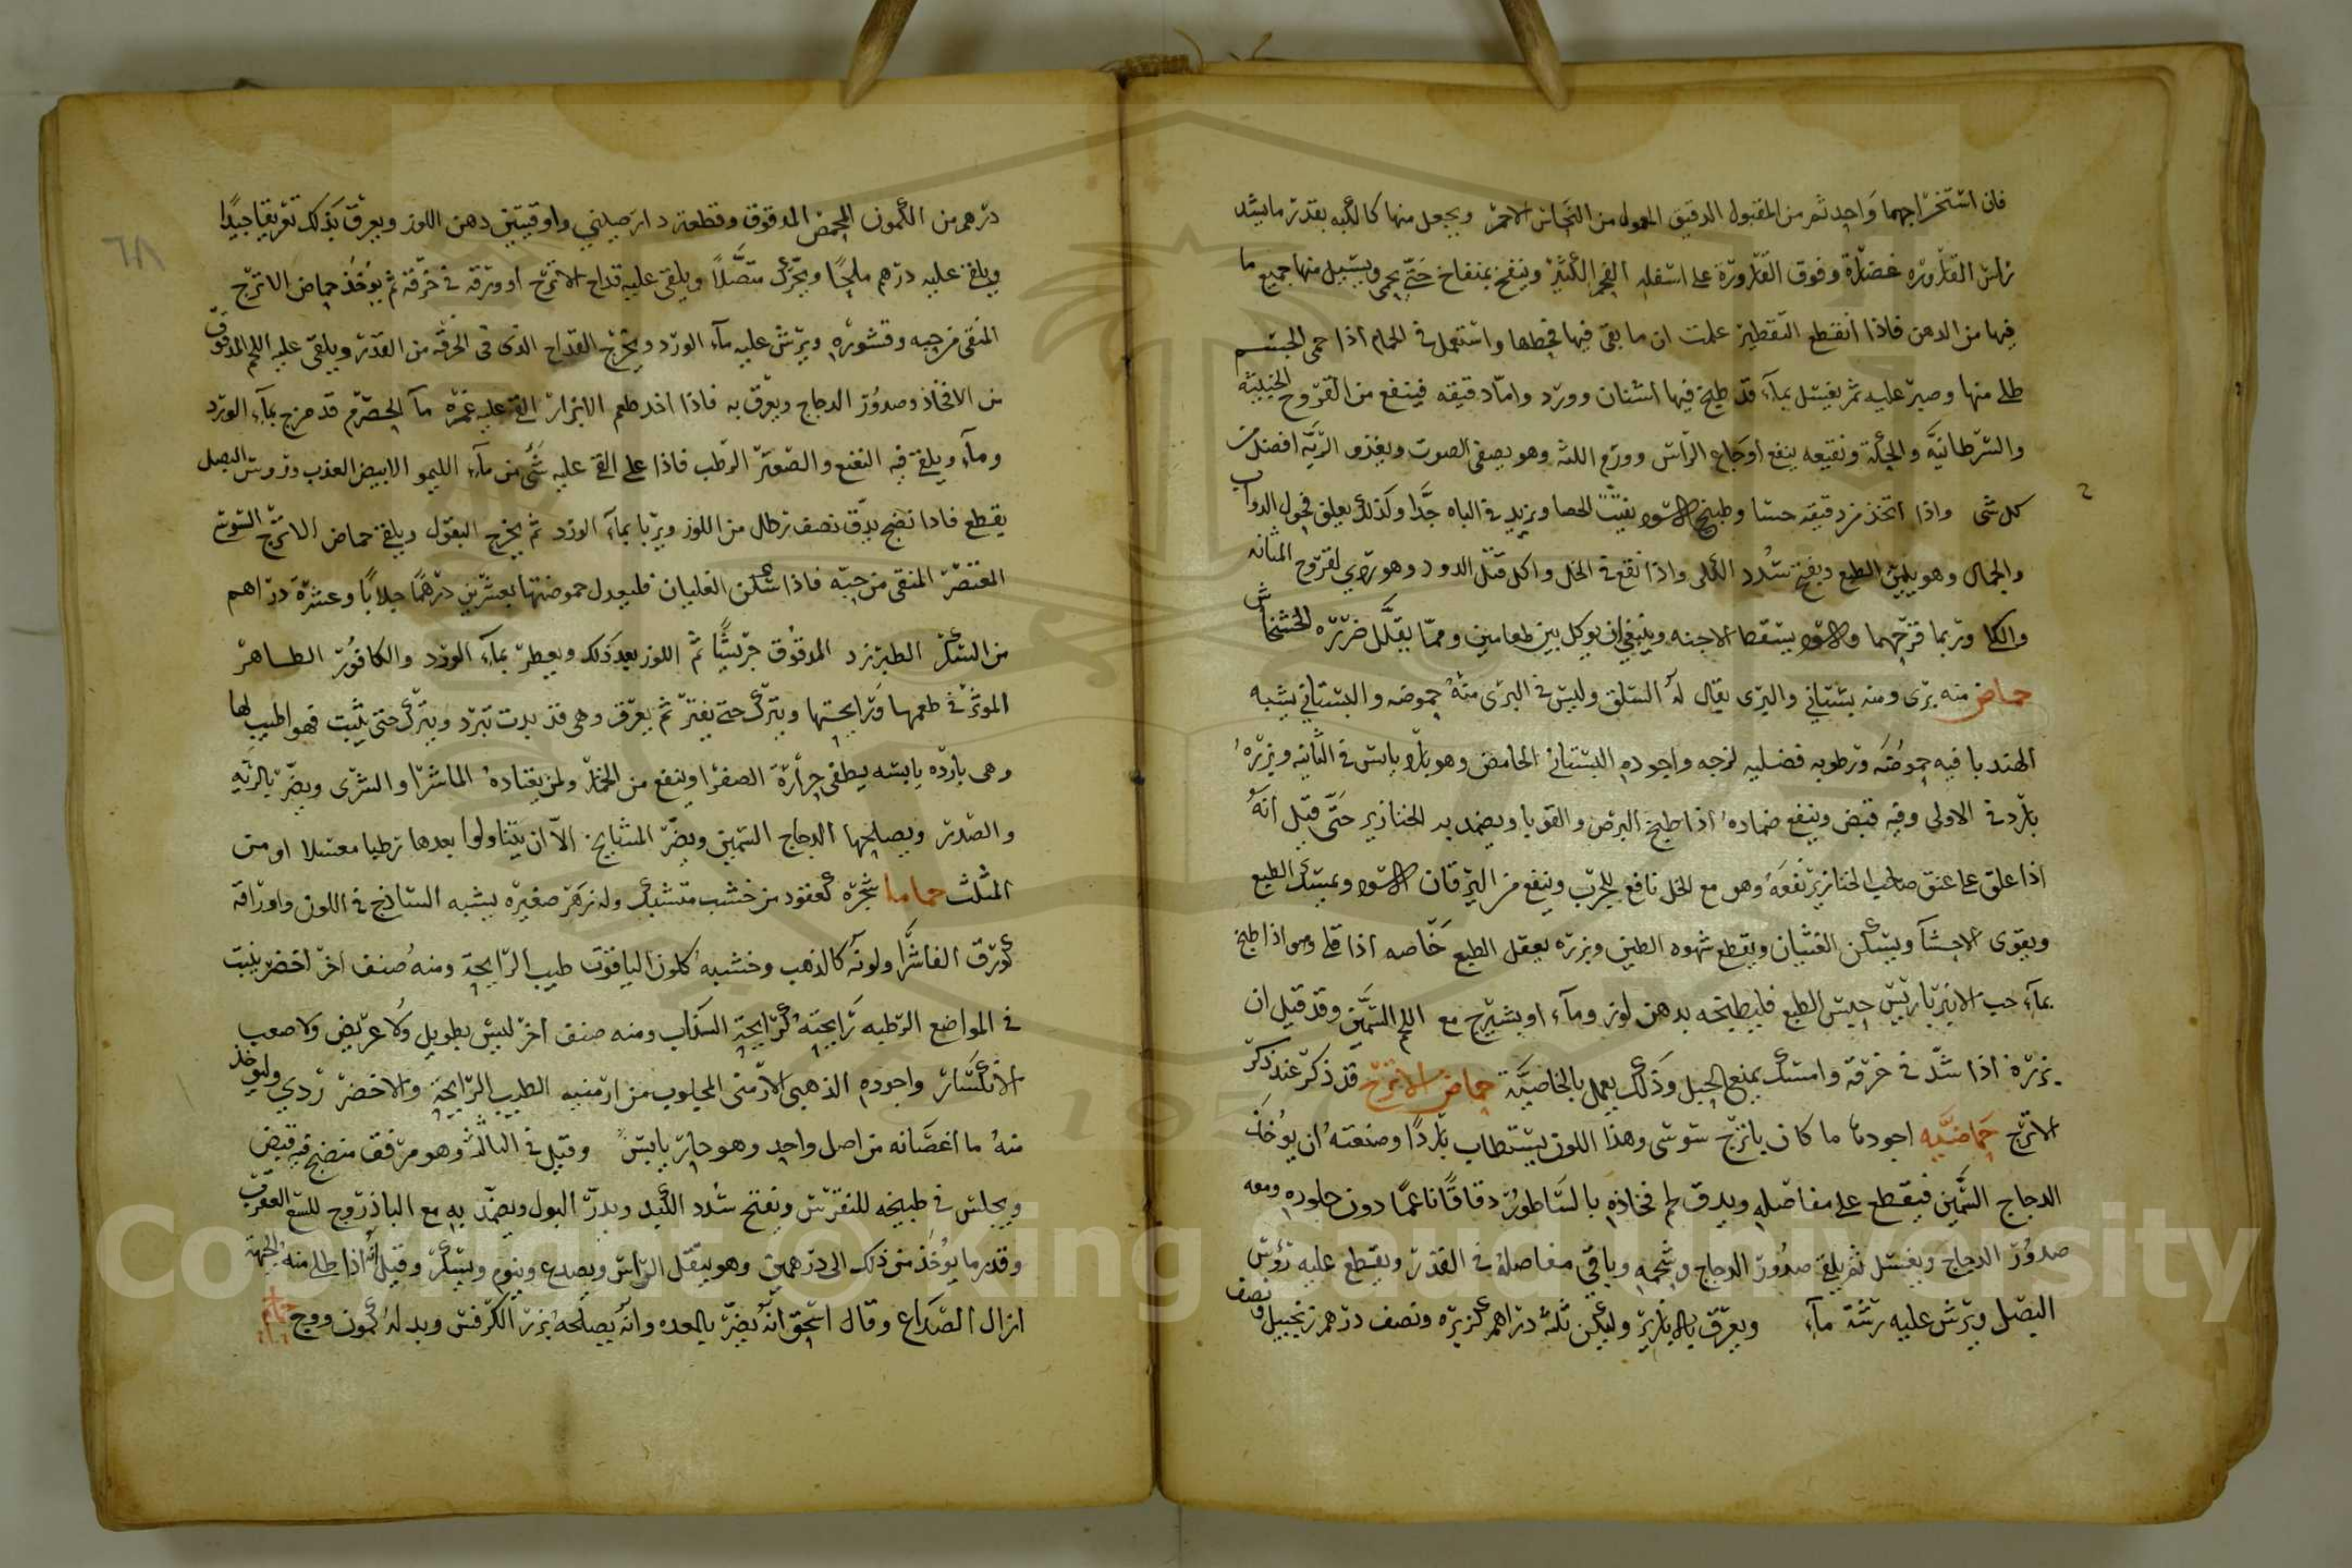 فان استخراجهما واحد ثم من المقبول الدقيق المعمول من النحاس الاحمر ويجعل منها كالكبه بقدر ما يسد
راس القاروره غضارة وفوق القارورة على اسفله الفحم الكثير وينفخ بمنفاخ حتى يحمى ويسيل منها جميع ما
فيها من الدهن فاذا انقطع التقطير علمت ان ما بقى فيها فحطها واستعمل فى الحمام اذا حمى الجسم
طلى منها وصبر عليه ثم يغتسل بماء قد طبخ فيها اشنان وورد واما دقيقه فينفع من القروح الخبيثه
والسرطانية والحكة ونقيعه ينفع اوجاع الراس وورم اللثه وهو يصفى الصوت ويغذو الريه افضل من
كل شى واذا اتخذ من دقيقه حسا وطبيخ الاسود يفتت الحصا ويزيد فى الباه جدا وكذلك يعلق فحول الدواب
والجمال وهو يلين الطبع ويفتح سدد الكلى واذا نقع فى الخل واكل قتل الدود وهو ردي لقروح المثانه
والكلا وربما قرحهما والاسود يسقط الاجنه وينبغي ان يوكل بين طعامين ومما يقلل ضرره الخشخاش
حماض منه برى ومنه بستاني والبرى يقال له السلق وليس فى البرى منه حموضه والبستاني يشبه
الهندبا فيه حموضه ورطوبه فضليه لزجه واجوده البستانى الحامض وهو بارد يابس فى الثانيه وبزره
بارد فى الاولى وفيه قبض وينفع ضماده اذا طبخ البرص والقوبا ويضمد به الخنازير حتى قيل انه
اذا علق على عنق صاحب الخنازير نفعه وهو مع الخل نافع للجرب وينفع من اليرقان الاسود ويمسك الطبع
ويقوى الاحشآ ويسكن الغثيان ويقطع شهوه الطين وبزره يعقل الطبع خاصه اذا قلى وهو اذا طبخ
بماء حب الانبرباريس حبس الطبع فليطبخه بدهن لوز وماء او بشيرج مع اللحم السمين وقد قيل ان
بزره اذا شد فى خرقه وامسك يمنع الحبل وذلك يعمل بالخاصية حماض الاترج قد ذكر عند ذكر
الاترج حماضيه اجودها ما كان باترج سوسى وهذا اللون يستطاب باردا وصنعته ان يوخذ
الدجاج السمين فيقطع على مفاصله ويدق لحم فخاذه بالساطور دقاقا ناعما دون جلوده ومعه
صدور الدجاج ويغسل ثم يلقى صدور الدجاج وشحمه وباقي مفاصله فى القدر ويقطع عليه روس
البصل ويرش عليه رشة ماء ويعرق بالابازير وليكن ثلثة دراهم كزبره ونصف درهم زنجبيل ونصف
درهم من الكمون المحمص المدقوق وقطعة دارصيني واوقيتين دهن اللوز ويعرق بذلك تعريقا جيدا
ويلقى عليه درهم ملحا ويحرك متصلا ويلقى عليه قداح الاترج او ورقه فى خرقه ثم يوخذ حماض الاترج
المنقى من حبه وقشوره ويرش عليه ماء الورد ويخرج القداح الذى فى الخرقه من القدر ويلقى عليه اللحم المدقوق
من الافخاذ وصدور الدجاج ويعرق به فاذا اخذ طعم الابزار القى عليه غمره مآ الحصرم قد مزج بماء الورد
ومآء ويلقى فيه النعنع والصعتر الرطب فاذا غلى القى عليه شى من مآء الليمو الابيض العذب وروس البصل
يقطع فاذا نضج يدق نصف رطل من اللوز ويربا بمآء الورد ثم يخرج البقول ويلقى حماض الاترج السوسى
المعتصر المنقى من حبه فاذا سكن الغليان فليعدل حموضتها بعشرين درهما جلابا وعشرة دراهم
من السكر الطبرزد المدقوق جريشا ثم اللوز بعد ذلك ويعطر بمآء الورد والكافور الطاهر
الموثر فى طعمها ورايحتها ويترك حتى يفتر ثم يغرف وهى قد بدت تبرد ويترك حتى يثبت فهو اطيب لها
وهى بارده يابسه يطفى حرارة الصفرا وينفع من الخمار ولمن يعتاده الماشرا والشرى ويضر بالريه
والصدر ويصلحها الدجاج السمين ويضر المشايخ الا ان يتناولوا بعدها رطبا معسلا او من
المثلث حماما شجره كعنقود من خشب متشبك وله زهر صغيره يشبه الساذج فى اللون واوراقه
كورق الفاشرا ولونه كالذهب وخشبه كلون الياقوت طيب الرايحة ومنه صنف اخر اخضر ينبت
فى المواضع الرطبه رايحته كرايحة السذاب ومنه صنف اخر ليس بطويل ولا عريض ولا صعب
الانكسار واجوده الذهبى الارمنى المجلوب من ارمنيه الطيب الرايحة والاخضر ردي وليوخذ
منه ما اغصانه من اصل واحد وهو حار يابس وقيل فى الثالثه وهو مرقق منضج فيه قبض
ويجلس فى طبيخه للنقرس ويفتح سدد الكبد ويدر البول ويضمد به مع الباذروج للسع العقرب
وقدر ما يوخذ من ذلك الى درهمين وهو يثقل الراس ويصدع وينوم ويسكر وقيل انه اذا طلى منه الجبهة
ازال الصداع وقال اسحق انه يضر بالمعده وانه يصلحه بزر الكرفس وبدله كمون ووج